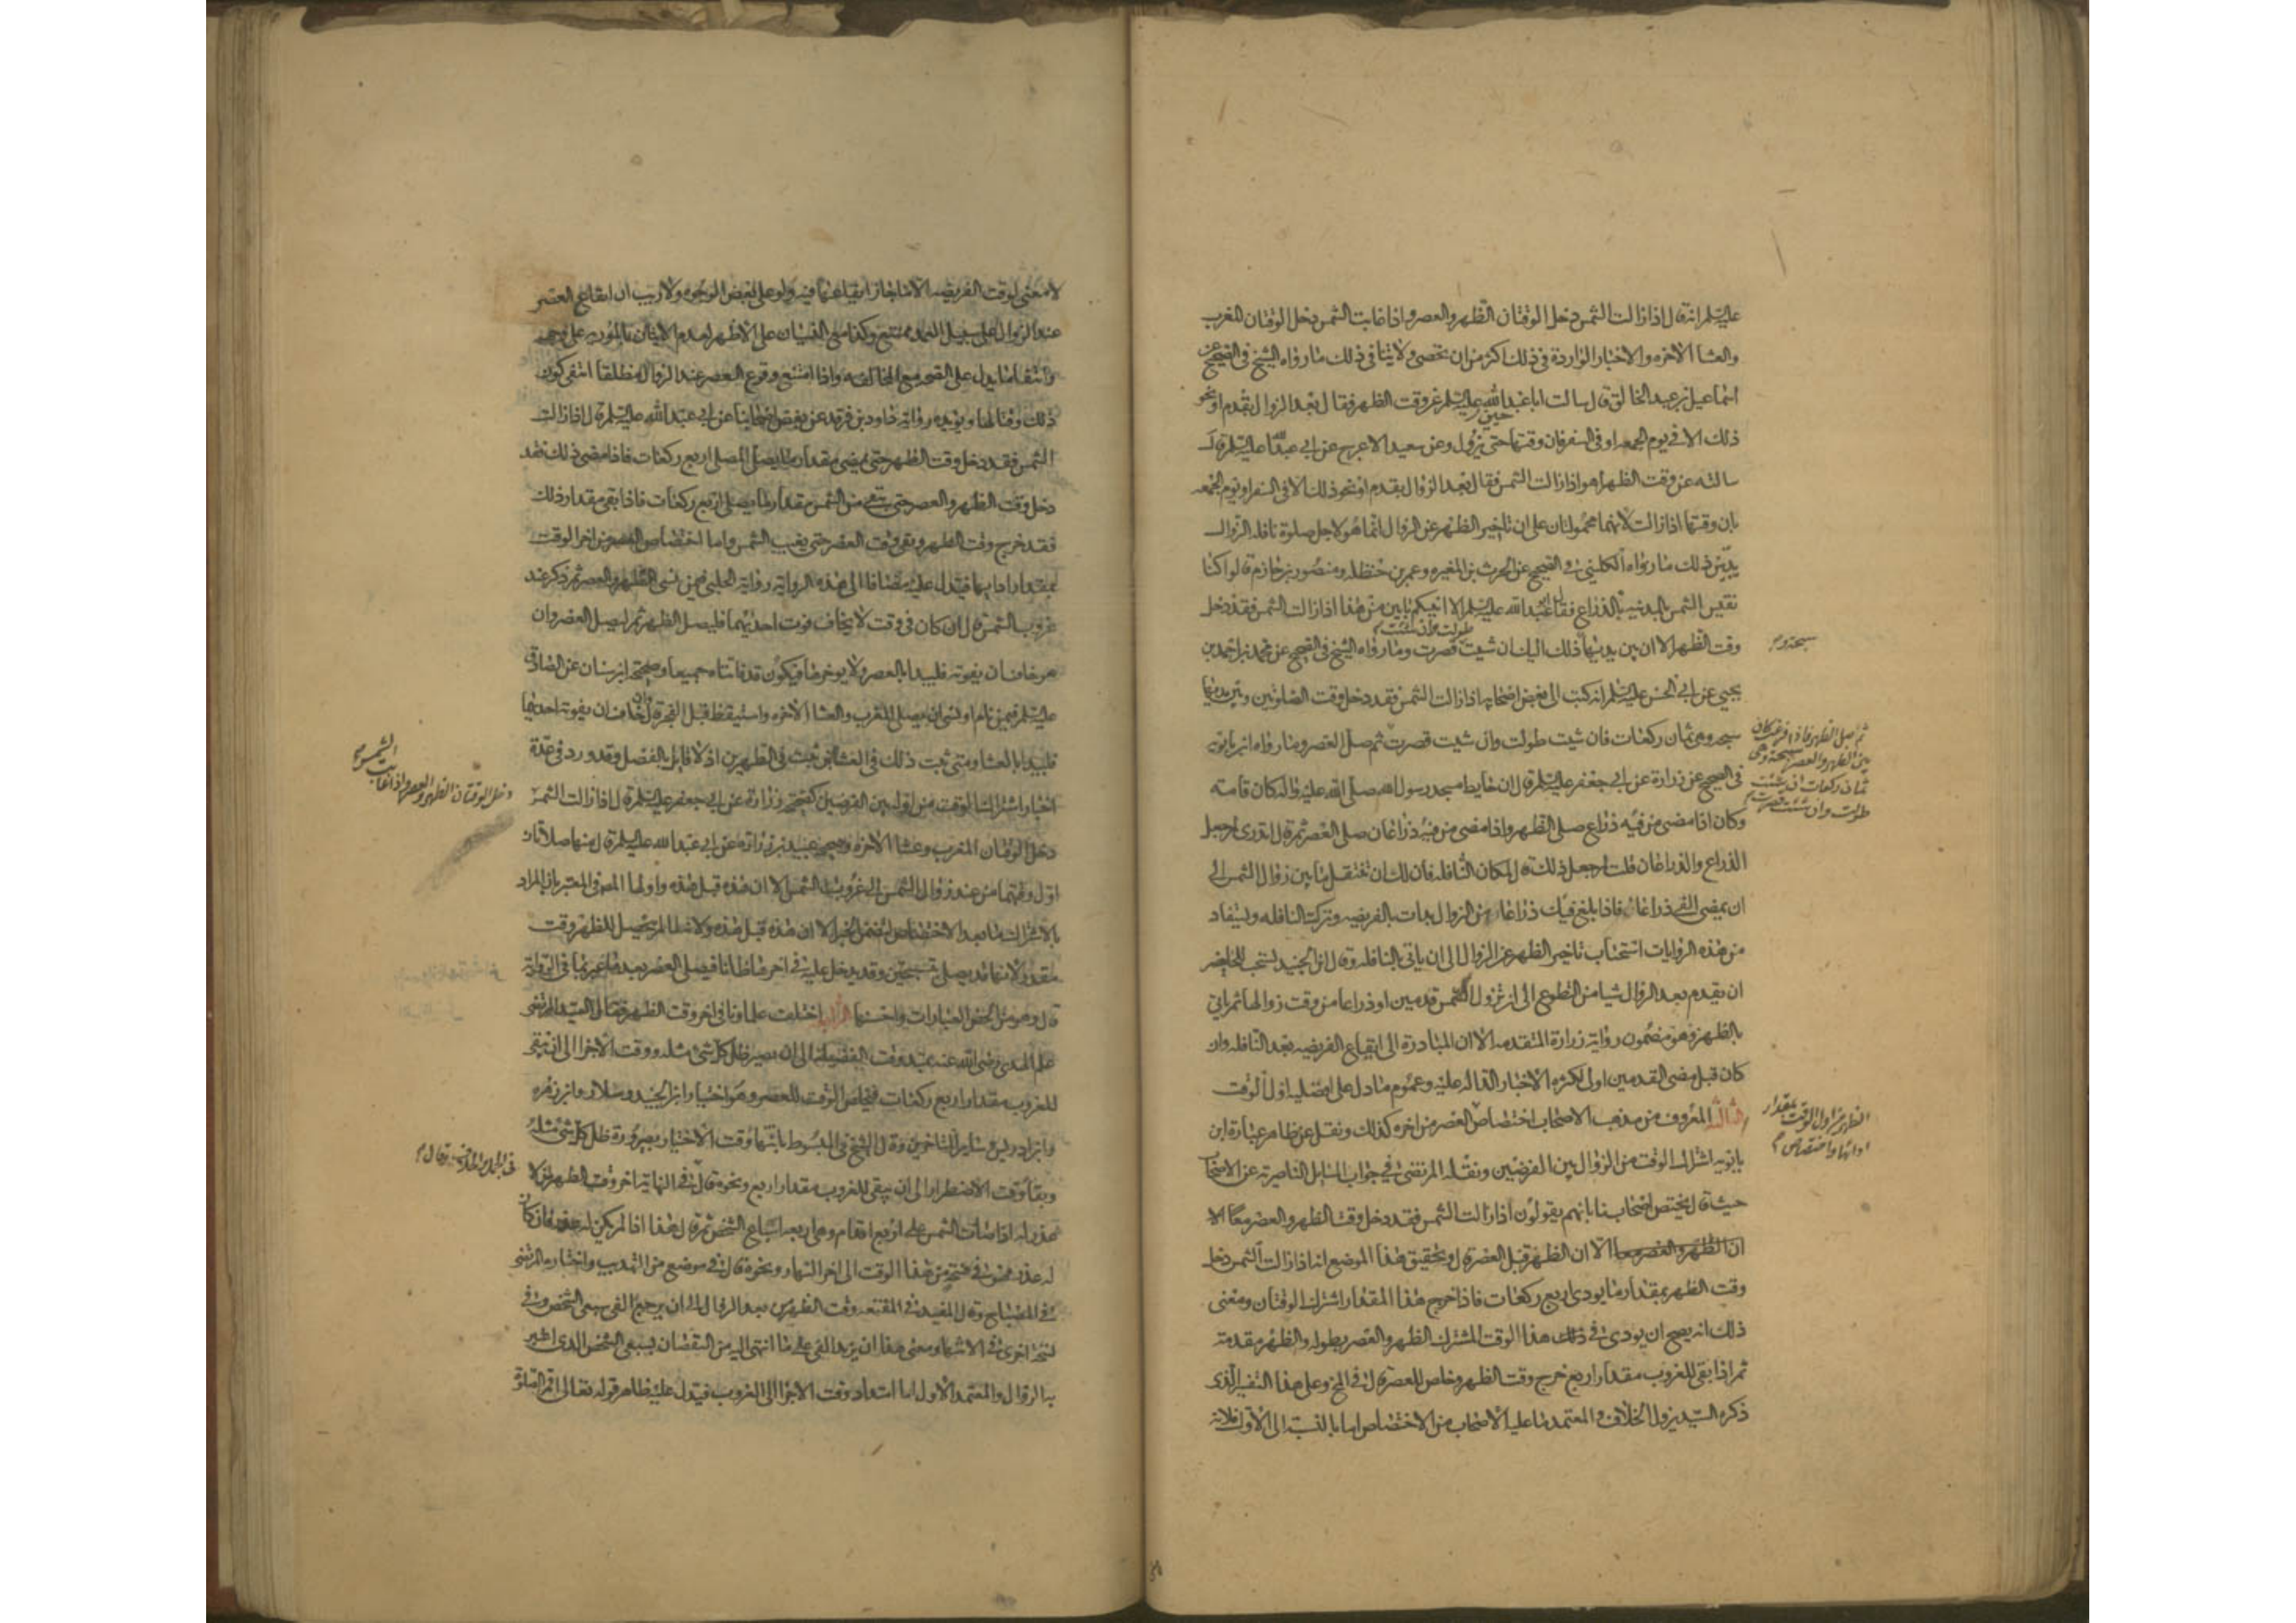 عليه السلم انه قال اذا زالت الشمس دخل الوقتان الظهر والعصر واذا غابت الشمس دخل الوقتان المغرب
والعشا الاخره والاخبار الواردة في ذلك اكثر من ان تحصى ولا ينافي ذلك ما رواه الشيخ في الصحيح عن
اسماعيل بن عبد الخالق قال سالت ابا عبد الله عليه السلم عن وقت الظهر فقال بعد الزوال بقدم او نحو
ذلك الا في يوم الجمعه او في السفر فان وقتها حين تزول وعن سعيد الاعرج عن ابي عبد الله عليه السلم قال
سالته عن وقت الظهر اهو اذا زالت الشمس فقال بعد الزوال بقدم او نحو ذلك الا في السفر او يوم الجمعه
فان وقتها اذا زالت لانهما محمولتان على ان تاخير الظهر عن الزوال انما هو لاجل صلوة نافله الزوال
يبين ذلك ما رواه الكليني في الصحيح عن الحرث بن المغيره وعمر بن حنظله ومنصور بن حازم قالوا كنا
نقيس الشمس بالمدينه بالذراع فقال ابو عبد الله عليه السلم الا انبيكم بابين من هذا اذا زالت الشمس فقد دخل
وقت الظهر الا ان بين يديها سبحة وذلك اليك ان شيت طولت وان شئت قصرت وما رواه الشيخ في الصحيح عن محمد بن احمد بن
يحيي عن ابي الحسن عليه السلم انه كتب الى بعض اصحابه اذا زالت الشمس فقد دخل وقت الصلوتين وبين يديهما
سبحة وهي ثمان ركعات فان شيت طولت وان شيت قصرت ثم صل العصر وما رواه ابن بابويه
ثم صل الظهر فاذا فرغت كان
بين الظهر والعصر سبحة وهي
ثمان ركعات ان شئت
طولت وان شئت قصرت
في الصحيح عن زرارة عن ابي جعفر عليه السلم قال ان حايط مسجد رسول الله صلى الله عليه واله كان قامة
وكان اذا مضى من فيه ذراع صلى الظهر واذا مضى من فيه ذراعان صلى العصر ثم قال اتدري لم جعل
الذراع والذراعان قلت لم جعل ذلك قال لمكان النافله فان لك ان تتنفل ما بين زوال الشمس الى
ان يمضي الفي ذراعا فاذا بلغ فيك ذراعا من الزوال بدات بالفريضه وتركت النافله ويستفاد
من هذه الروايات استحباب تاخير الظهر عن الزوال الى ان ياتي بالنافله وقال ابن الجنيد يستحب للحاضر
ان يقدم بعد الزوال شيا من التطوع الى ان تزول الشمس قدمين او ذراعا من وقت زوالها ثم ياتي
بالظهر وهو مضمون رواية زرارة المتقدمه الا ان المبادرة الى ايقاع الفريضه بعد النافله وان
كان قبل مضى القدمين اولى لكثره الاخبار الداله عليه وعموم ما دل على افضليه اول الوقت
الثالث المعروف من مذهب الاصحاب اختصاص الظهر من اول الوقت بمقدار
ادائها واختصاص العصر من اخره كذلك ونقل عن ظاهر عبارة ابن
بابويه اشتراك الوقت من الزوال بين الفرضين ونقله المرتضى في جواب المسايل الناصرية عن الاصحاب
حيث قال يختص اصحابنا بانهم يقولون اذا زالت الشمس فقد دخل وقت الظهر والعصر معا الا
ان الظهر والعصر معا الا ان الظهر قبل العصر قال وتحقيق هذا الموضع انه اذا زالت الشمس دخل
وقت الظهر بمقدار ما يودى اربع ركعات فاذا خرج هذا المقدار اشترك الوقتان ومعنى
ذلك انه يصح ان يودى في ذلك هذا الوقت المشترك الظهر والعصر بطوله والظهر مقدمة
ثم اذا بقى للغروب مقدار اربع خرج وقت الظهر وخلص للعصر قال في المخ وعلى هذا التفسير الذي
ذكره السيد يزول الخلاف والمعتمد ما عليه الاصحاب من الاختصاص اما بالنسبة الى الاول فلانه
لا معنى لوقت الفريضه الا ما جاز ايقاعها فيه ولو على بعض الوجوه ولا ريب ان ايقاع العصر
عند الزوال على سبيل العمد ممتنع وكذا مع النسيان على الاظهر لعدم الاتيان بالمامور به على وجهه
وانتفاء ما يدل على الصحه مع المخالفه واذا امتنع وقوع العصر عند الزوال مطلقا انتفى كون
ذلك وقتا لها ويويده رواية داود بن فرقد عن بعض اصحابنا عن ابي عبد الله عليه السلم قال اذا زالت
الشمس فقد دخل وقت الظهر حتى يمضي مقدار ما يصلي المصلي اربع ركعات فاذا مضى ذلك فقد
دخل وقت الظهر والعصر حتى يبقى من الشمس مقدار ما يصلي اربع ركعات فاذا بقى مقدار ذلك
فقد خرج وقت الظهر وبقى وقت العصر حتى يغيب الشمس واما اختصاص العصر من اخر الوقت
بمقدار ادايها فيدل عليه مضافا الى هذه الرواية رواية الحلبي فيمن نسي الظهر والعصر ثم ذكر عند
غروب الشمس قال ان كان في وقت لا يخاف فوت احديهما فليصل الظهر ثم ليصل العصر وان
هو خاف ان يفوته فليبدا بالعصر ولا يوخرها فيكون قد فاتتاه جميعا وصحيحة ابن سنان عن الصادق
عليه السلم فيمن نام او نسي ان يصلي المغرب والعشا الاخره واستيقظ قبل الفجر قال وان خاف ان يفوته احديهما
فليبدا بالعشا ومتى ثبت ذلك في العشائين ثبت في الظهرين اذ لا قايل بالفصل وقد ورد في عدة
اخبار اشتراك الوقت من اوله بين الفرضين كصحيحة زرارة عن ابي جعفر عليه السلم قال اذا زالت الشمس
دخل الوقتان الظهر والعصر واذا غابت
الشمس
دخل الوقتان المغرب وعشا الاخره وصحيحة عبيد بن زرارة عن ابي عبد الله عليه السلم قال منها صلاتان
اول وقتهما من عند زوال الشمس الى غروب الشمس الا ان هذه قبل هذه واولها المص في المعتبر بان المراد
بالاشتراك ما بعد الاختصاص لتضمن الخبر الا ان هذه قبل هذه ولانه لما لم يتحصل للظهر وقت
مقدر لانها قد يصلى بتسبيحتين وقد يدخل عليه في اخرها ظانا فيصلي العصر بعد عبر بما في الرواية
قال وهو من الخص العبارات واحسنها الرابع اختلف علماونا في اخر وقت الظهر فقال السيد المرتضى
علم الهدى رضي الله عنه يمتد وقت الفضيله الى ان يصير ظل كل شي مثله ووقت الاجزا الى ان يبقى
للغروب مقدار اربع ركعات فيخلص الوقت للعصر وهو اختيار ابن الجنيد وسلار وابن زهره
وابن ادريس وساير المتاخرين وقال الشيخ في المبسوط بانتهاء وقت الاختيار بصيرورة ظل كل شي مثله
وبقا وقت الاضطرار الى ان يبقى للغروب مقدار اربع ونحوه قال في النهاية اخر وقت الظهر لمن لا
عذر له اذا صارت الشمس على اربع اقدام وهي اربعه اسباع الشخص ثم قال هذا اذا لم يكن له عذر فان كان
له عذر فهو في فسحة من هذا الوقت الى اخر النهار ونحوه قال في موضع من التهذيب واختاره المرتضى
في المصباح وقال المفيد في المقنعه وقت الظهر من بعد الزوال الى ان يرجع الفي سبعي الشخص وفي
نسخة اخرى في الانتهاء ومعنى هذا ان يزيد الفي على ما انتهى اليه من النقصان بسبعي الشخص الذي اعتبر
به الزوال والمعتمد الاول اما امتداد وقت الاجزا الى الغروب فيدل عليه ظاهر قوله تعالى اقم الصلوة